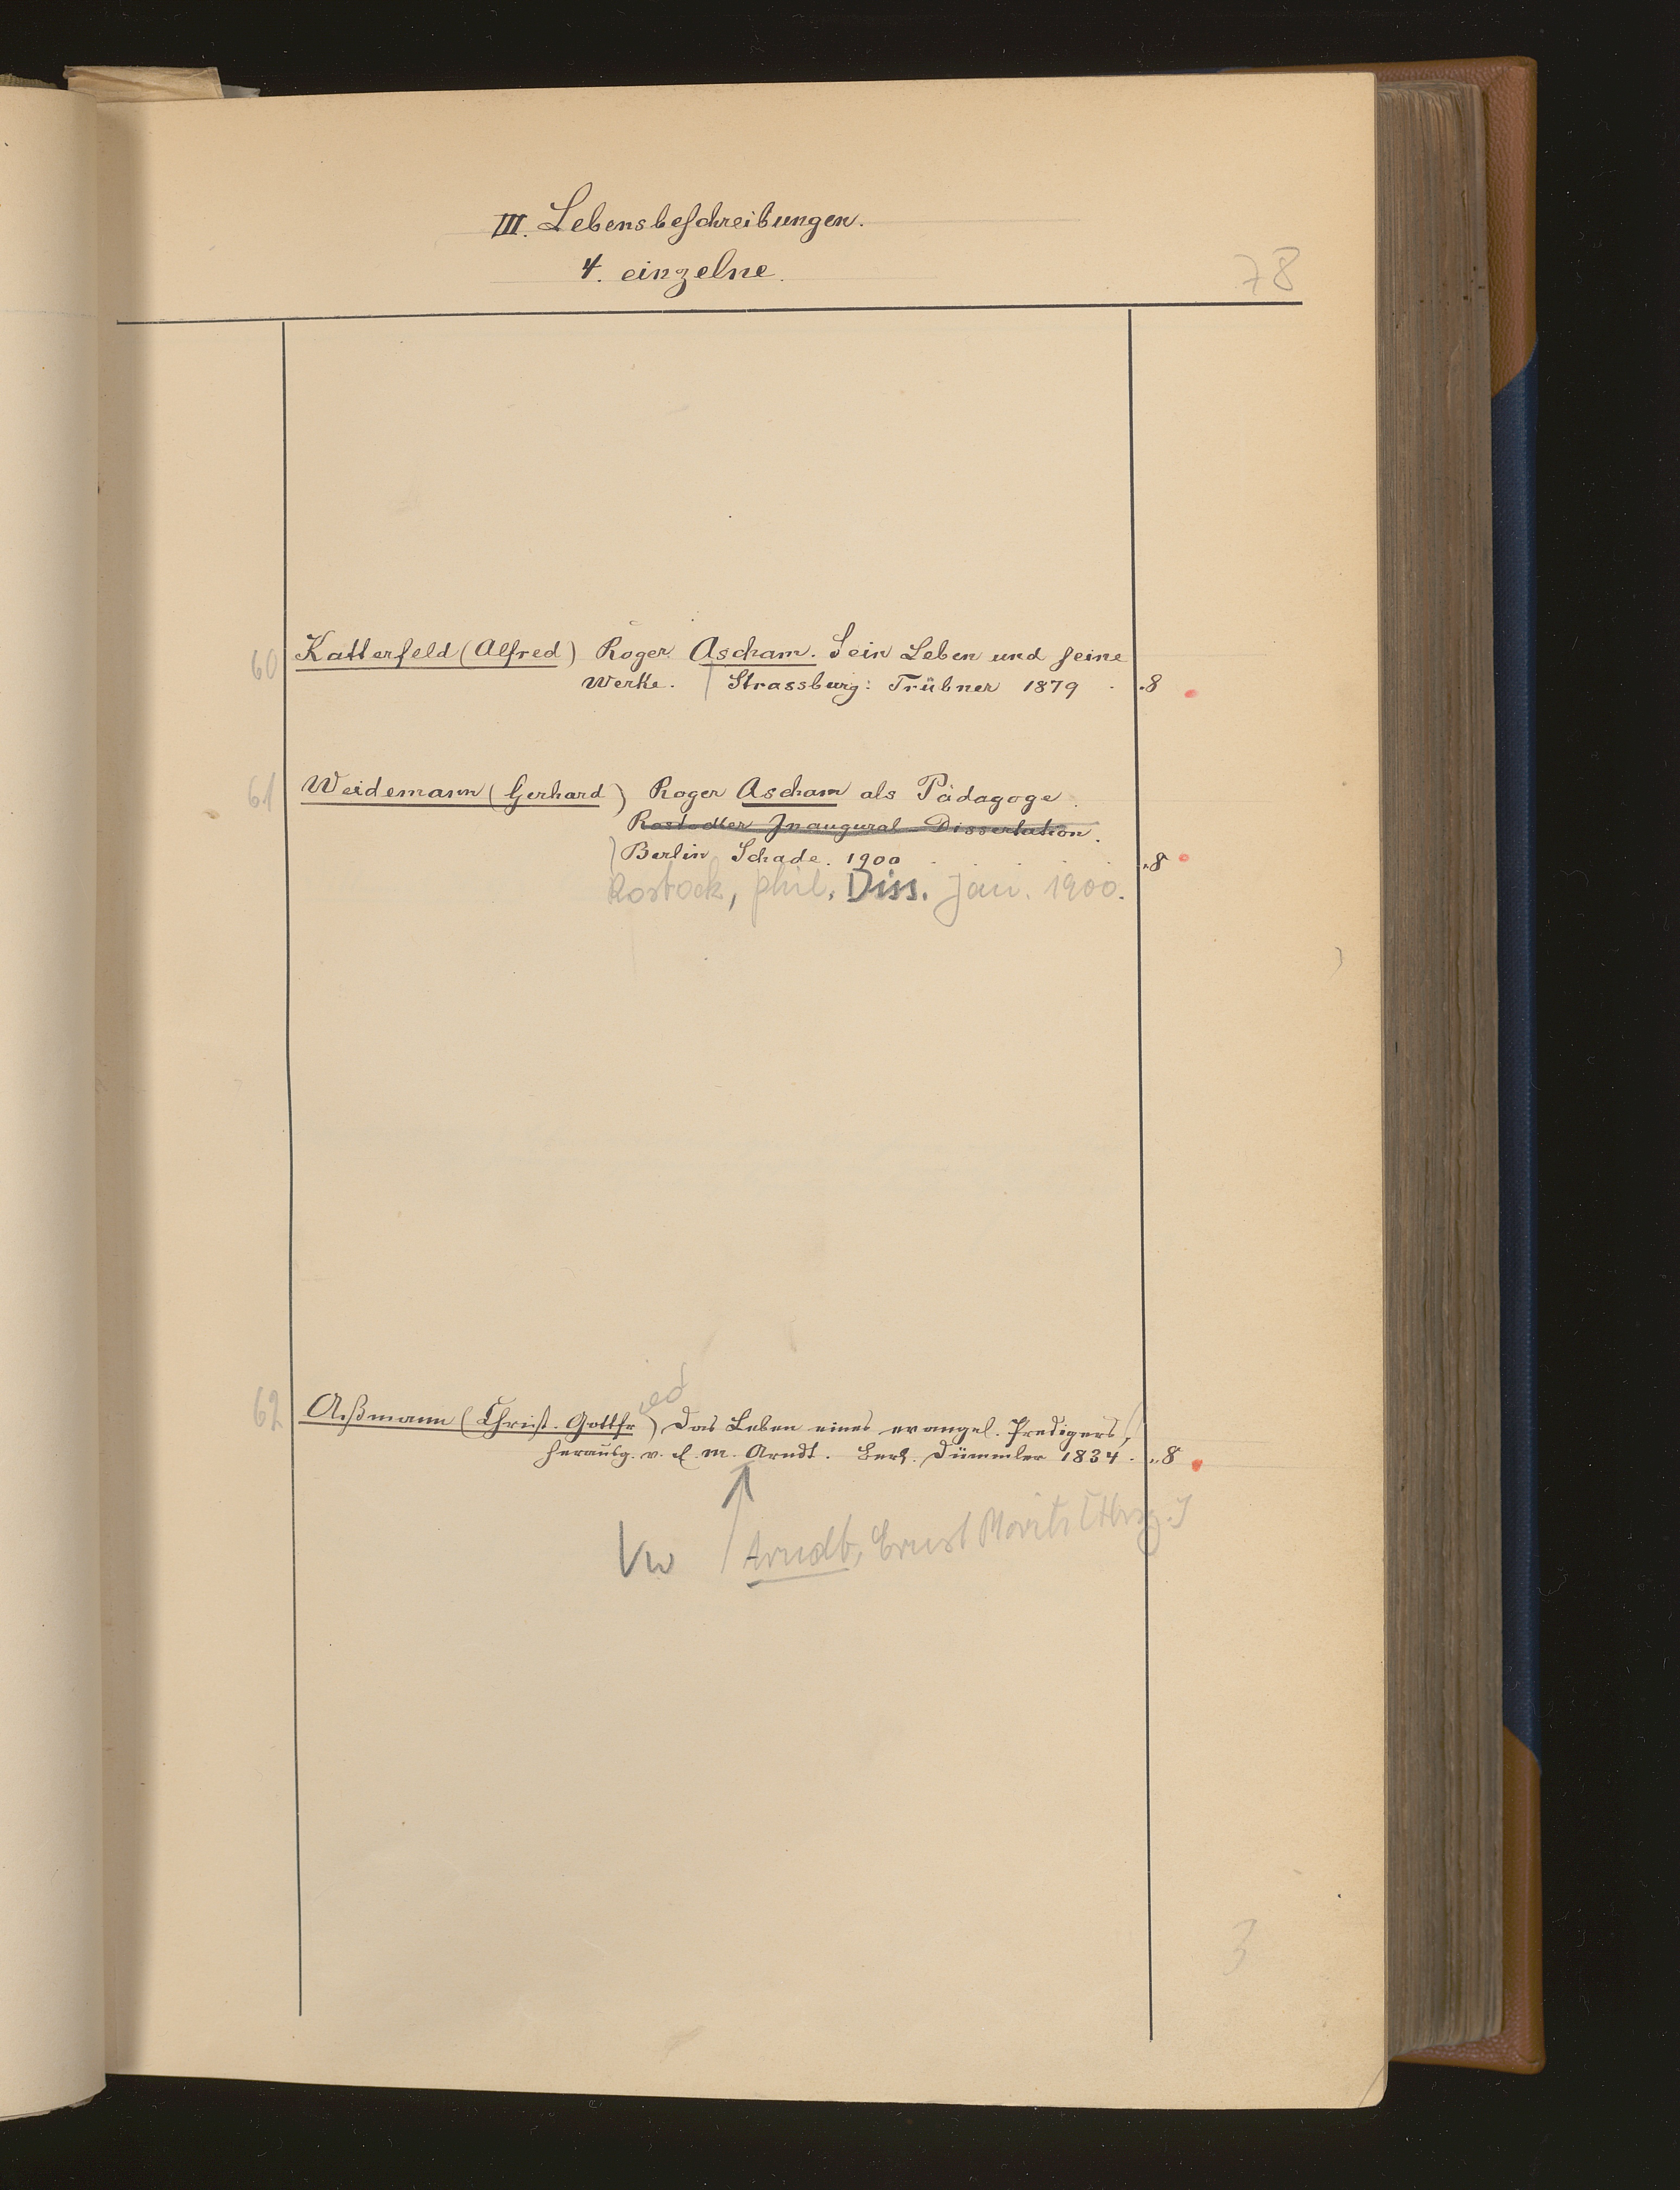 III. Lebensbeschreibungen.
4. einzelne.
78
60 Katterfeld (Alfred) Roger Ascham. Sein Leben und seine
Werke. Strassburg: Trübner 1879 . 8
61 Weidemann (Gerhard) Roger Ascham als Pädagoge.
Rostocker Inaugural-Dissertation.
Berlin Schade. 1900 . . . . 8
Rostock, phil. Diss. Jan. 1900.
ied
62 Aßmann (Christ. Gottfr) Das Leben eines evangel. Predigers,
herausg. v. E. M. Arndt. Berl. Dümmler 1834. 8
Vw Arndt, Ernst Moritz [Hrsg.]
3